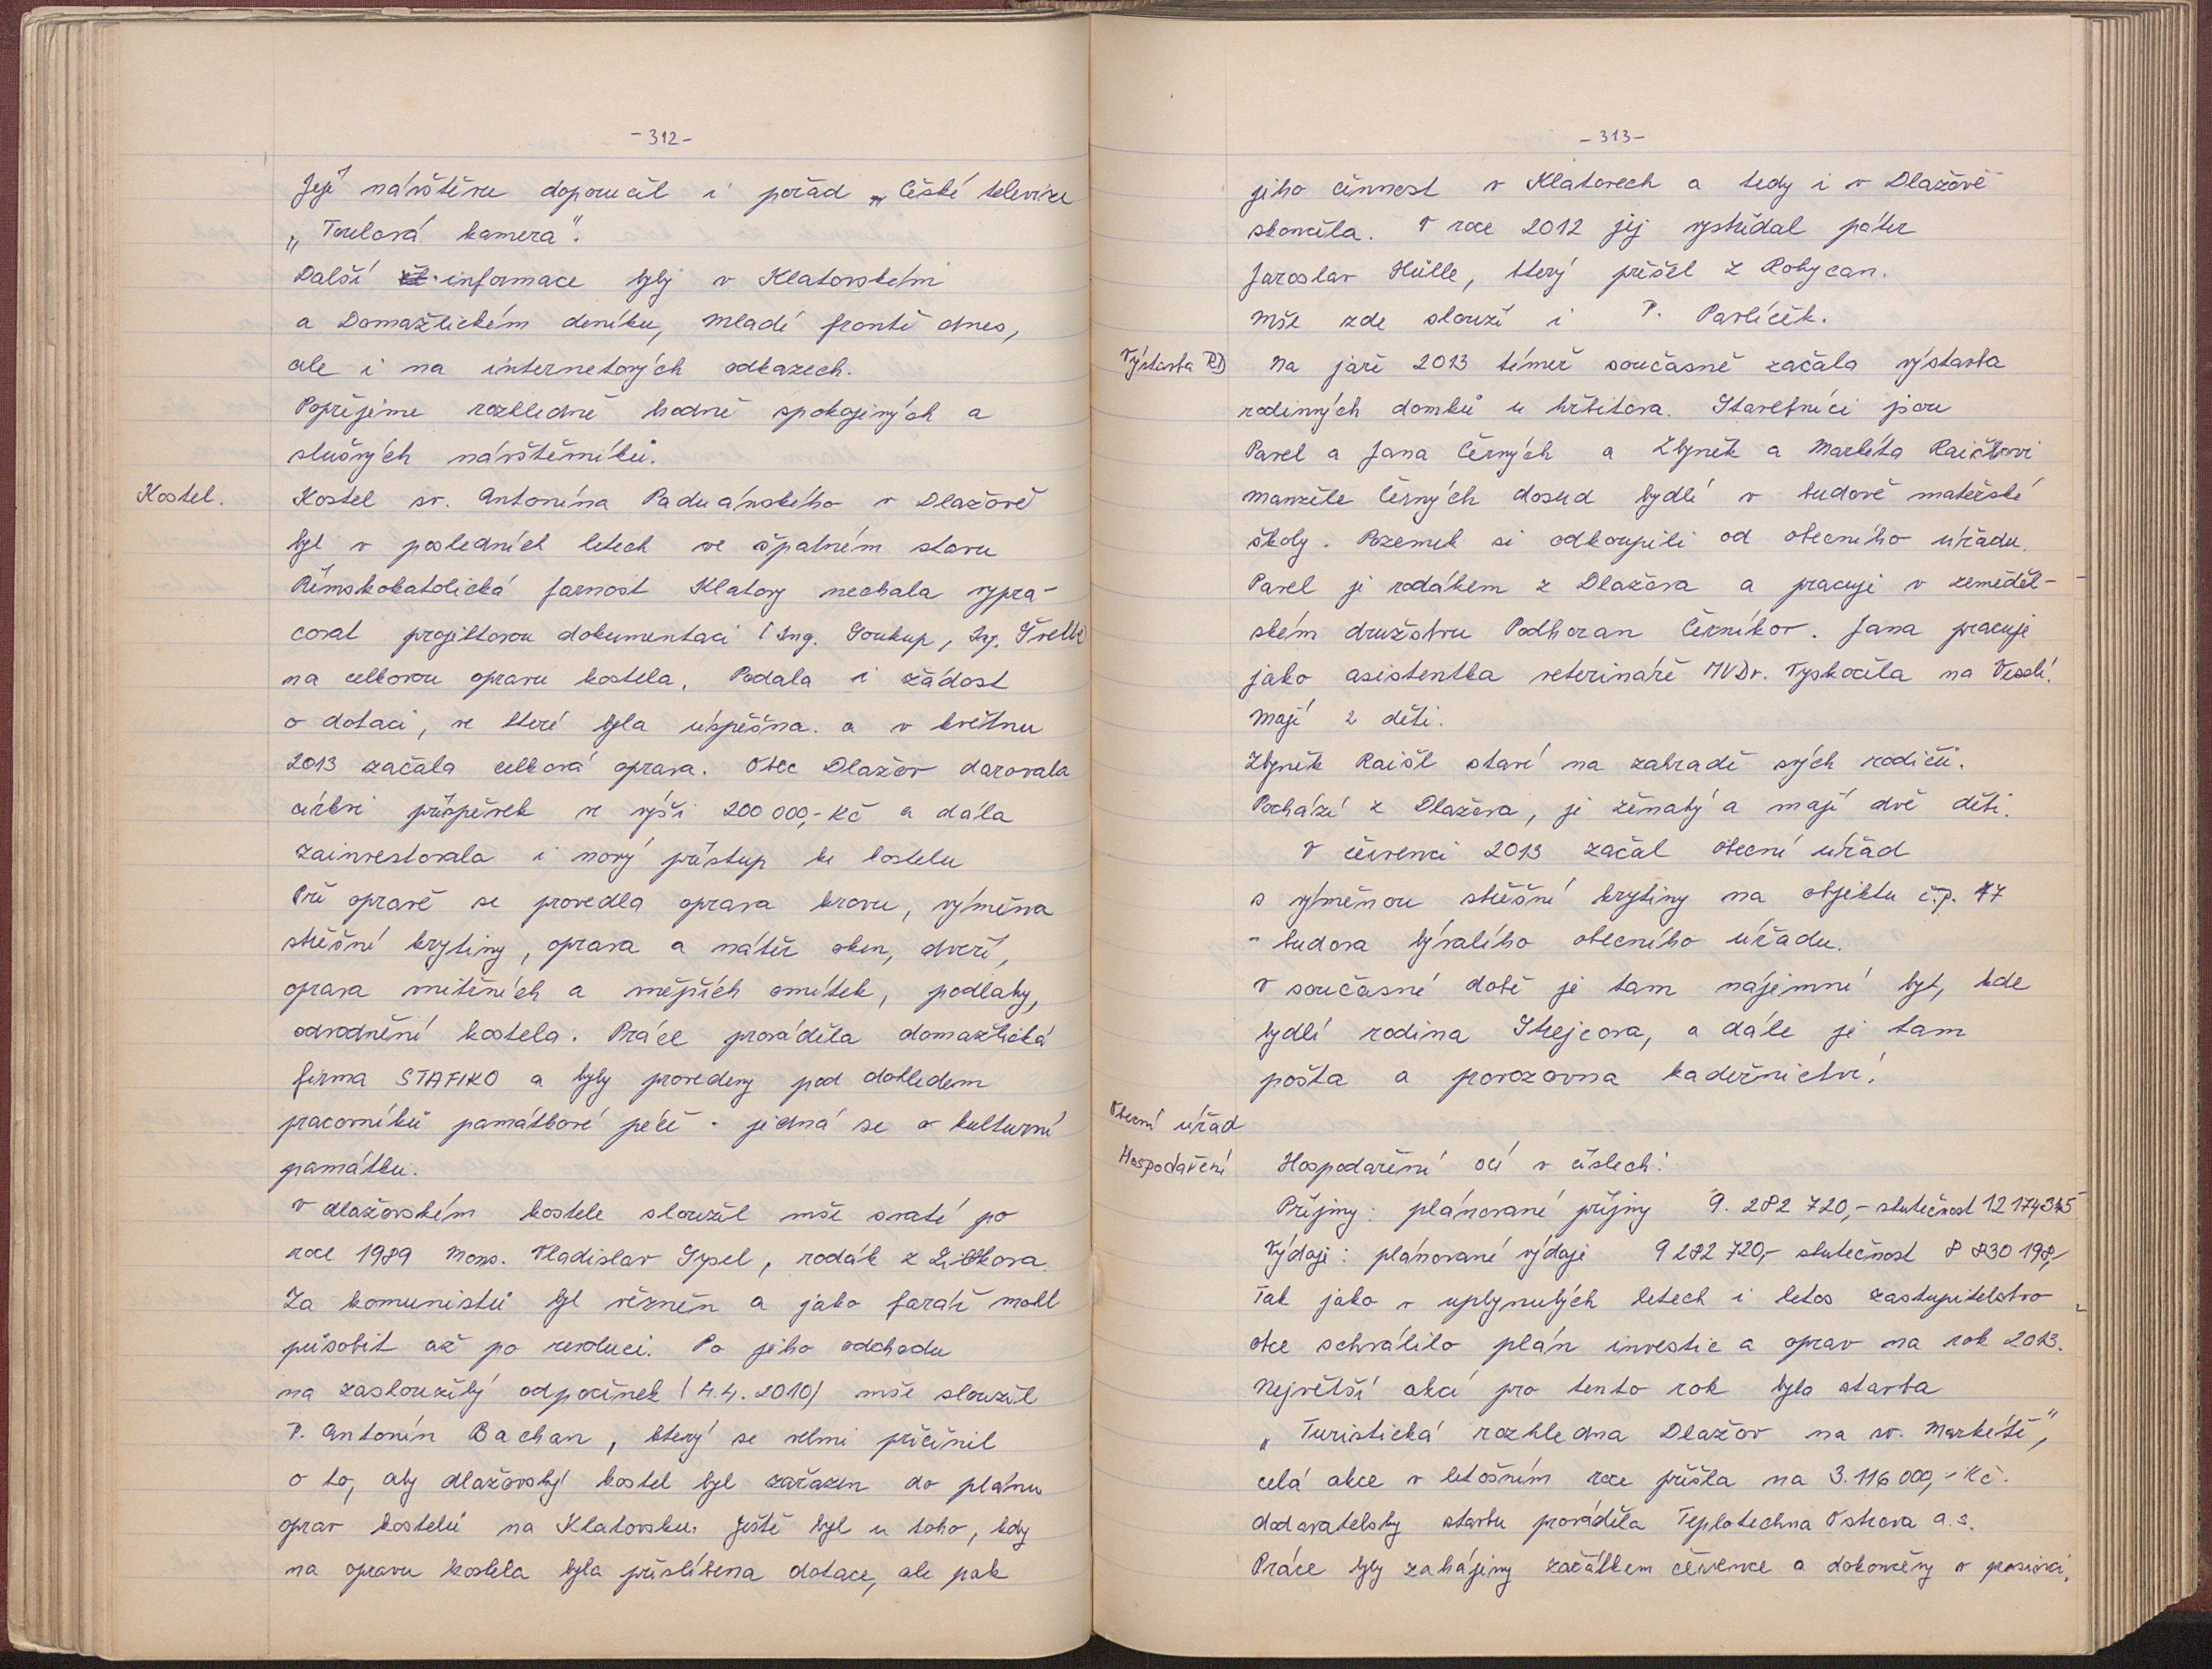 -312-
Její návštěvu doporučil i pořad „České televize
„Toulavá kamera".
Další informace byly v Klatovském
a Domažlickém deníku, Mladé frontě dnes,
ale i na internetových odkazech.
Popřejeme rozhledně hodně spokojených a
slušných návštěvníků.
Kostel.
Kostel sv. Antonína Paduánského v Dlažově
byl v posledních letech ve špatném stavu
Římskokatolická farnost Klatovy nechala vypra-
covat projektovou dokumentaci (Ing. Soukup, Ing.
na celkovou opravu kostela. Podala i žádost
o dotaci, ve které byla úspěšna. a v květnu
2013 začala celková oprava. Obec Dlažov darovala
církvi příspěvek ve výši 200 000,- Kč a dála
zainvestovala i nový přístup ke kostelu
Při opravě se provedla oprava krovu, výměna
střešní krytiny, oprava a nátěr oken, dveří,
oprava vnitřních a vnějších omítek, podlahy,
odvodnění kostela. Práce prováděla domažlická
firma STAFIKO a byly provedeny pod dohledem
pracovníků památkové péče - jedná se o kulturní
památku.
V dlažovském kostele sloužil mše svaté po
roce 1989 Mons. Vladislav Sysel, rodák z
Za komunistů byl vězněn a jako farář mohl
působit až po revoluci. Po jeho odchodu
na zasloužilý odpočinek (4.4.2010) mše sloužil
P. Antonín Bachan, který se velmi přičinil
o to, aby dlažovský kostel byl zařazen do plánu
oprav kostelů na Klatovsku. Ještě byl u toho, kdy
na opravu kostela byla přislíbena dotace, ale pak
-313-
jeho činnost v Klatovech a tedy i v Dlažově
skončila. V roce 2012 jej vystřídal páter
Jaroslav Hůlle, který přišel z Rokycan.
Mše zde slouží i P. Pavlíček.
Výstavba RD
Na jaře 2013 téměř současně začala výstavba
rodinných domků u hřbitova. Stavebníci jsou
Pavel a Jana Černých a Zbyněk a Markéta
manželé Černých dosud bydlí v budově mateřské
školy. Pozemek si odkoupili od obecního úřadu.
Pavel je rodákem z Dlažova a pracuje v zeměděl-
ském družstvu Podhoran Černíkov. Jana pracuje
jako asistentka veterináře MVDr. Vyskočila na Veselí.
Mají 2 děti.
Zbyněk Raišl staví na zahradě svých rodičů.
Pochází z Dlažova, je ženatý a mají dvě děti.
V červenci 2013 začal obecní úřad
s výměnou střešní krytiny na objektu č.p. 17
- budova bývalého obecního úřadu.
V současné době je tam nájemní byt, kde
bydlí rodina Strejcova, a dále je tam
pošta a provozovna kadeřnictví.
Obecní úřad
Hospodaření
Hospodaření OÚ v číslech:
Příjmy: plánované příjmy 9. 282 720,- skutečnost 12 174345
Výdaje: plánované výdaje 9 282 720,- skutečnost 8 830 198,-
Tak jako v uplynulých letech i letos zastupitelstvo
obce schválilo plán investic a oprav na rok 2013.
Největší akcí pro tento rok byla stavba
„Turistická rozhledna Dlažov na sv. Markétě",
celá akce v letošním roce přišla na 3.116 000,- Kč.
dodavatelsky stavbu prováděla Teplotechna Ostrava a.s.
Práce byly zahájeny začátkem července a dokončeny v prosinci.